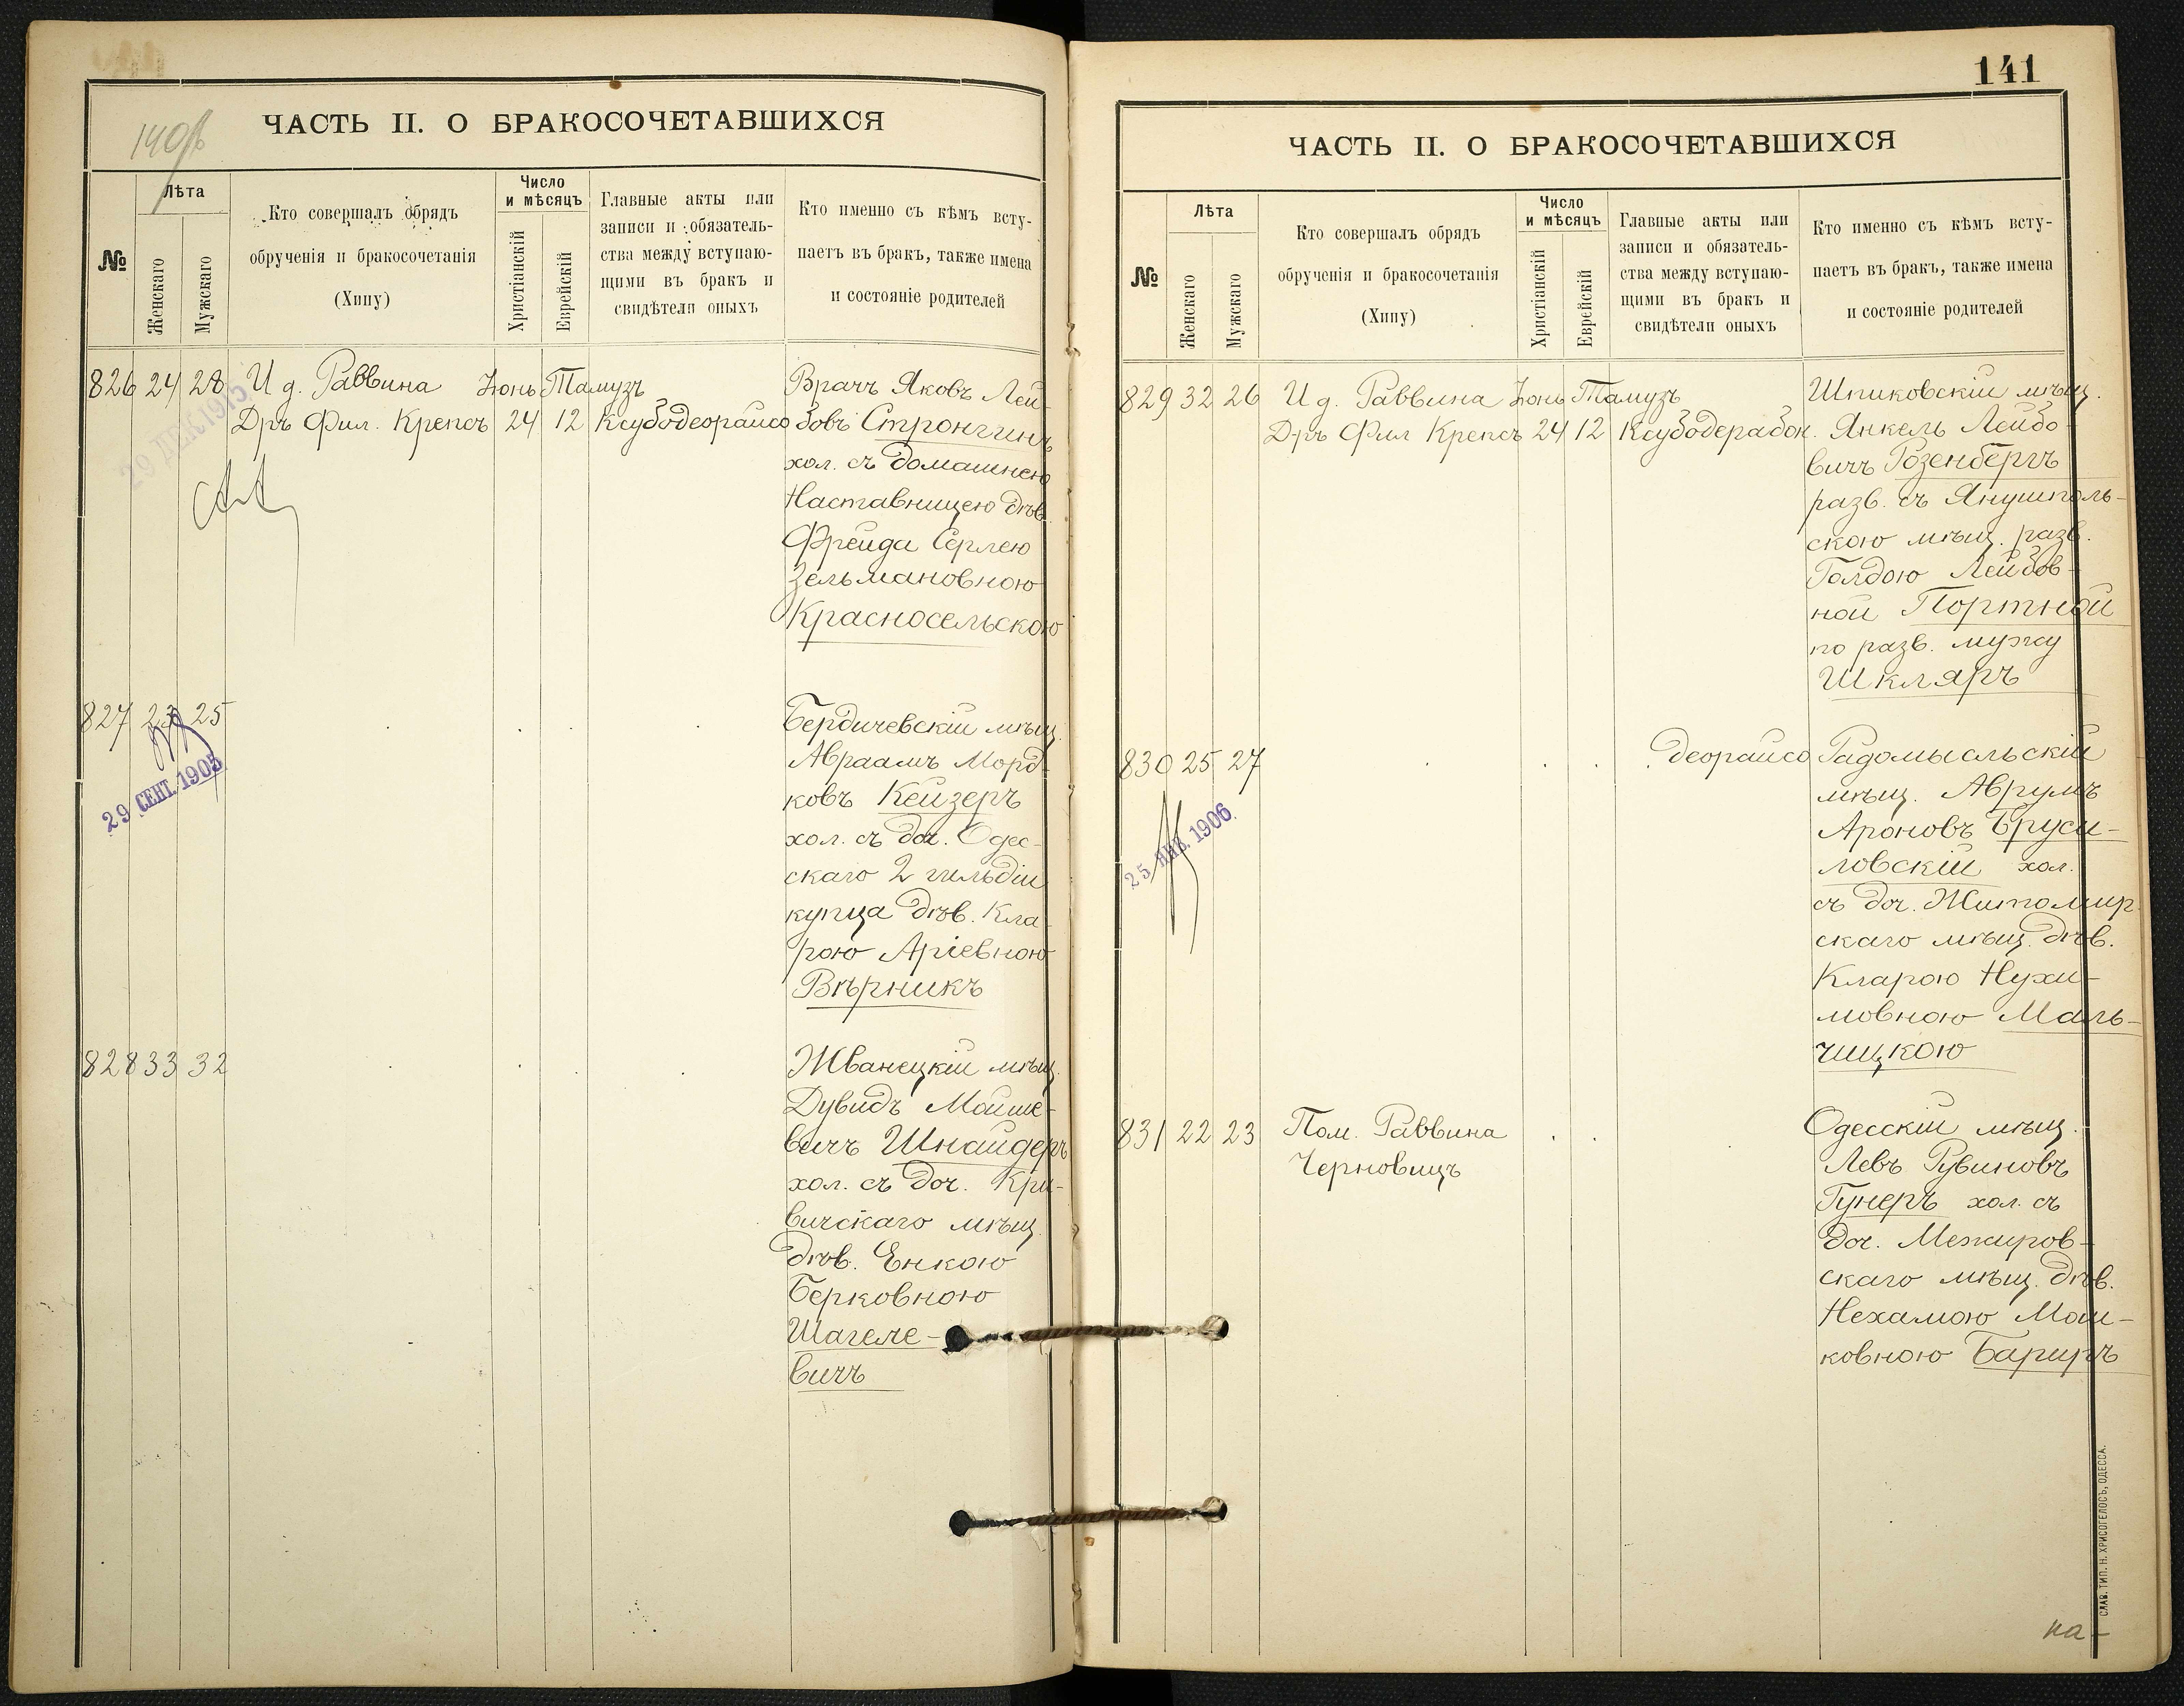 140 об
ЧАСТЬ II. О БРАКОСОЧЕТАВШИХСЯ
№
Лѣта
Женскаго
Мужскаго
Кто совершалъ обрядъ
обрученія и бракосочетанія
(Хипу)
Число
и мѣсяцъ
Христіанскій
Еврейскій
Главные акты или
записи и обязатель-
ства между вступаю-
щими въ бракъ и
свидѣтели оныхъ
Кто именно съ кѣмъ всту-
паетъ въ бракъ, также имена
и состояніе родителей
826 24 28 И д. Раввина Іюнь Тамузъ
Дръ Фил. Крепсъ 24 12 Ксубодеорайсо
29 ДЕК 1915
Врачъ Яковъ Лей-
бовъ Стронгинъ
хол. съ домашнею
Наставницею дѣв.
Фрейда Серлею
Зельмановною
Красносельскою
827 23 25
29 СЕНТ. 1905
Бердичевскій мѣщ.
Авраамъ Морд-
ковъ Кейзеръ
хол. съ доч. Одес-
скаго 2 гильдіи
купца дѣв. Кла-
рою Аріевною
Вѣрникъ
828 33 32
Жванецкій мѣщ.
Дувидъ Мойше-
вичъ Шнайдеръ
хол. съ доч. Кри-
вичскаго мѣщ.
дѣв. Енкою
Берковною
Шагеле-
вичъ
141
ЧАСТЬ II. О БРАКОСОЧЕТАВШИХСЯ
№
Лѣта
Женскаго
Мужскаго
Кто совершалъ обрядъ
обрученія и бракосочетанія
(Хипу)
Число
и мѣсяцъ
Христіанскій
Еврейскій
Главные акты или
записи и обязатель-
ства между вступаю-
щими въ бракъ и
свидѣтели оныхъ
Кто именно съ кѣмъ всту-
паетъ въ бракъ, также имена
и состояніе родителей
829 32 26 И д. Раввина Іюнь Тамузъ
Д-ръ Фил Крепсъ 24 12 Ксубодерабон.
Шпиковскій мѣщ.
Янкель Лейбо-
вичъ Розенбергъ
разв. съ Янушполь-
скою мѣщ. разв.
Голдою Лейбов-
ной Портной
по разв. мужу
Шкляръ
830 25 27 деорайсо
25 ЯНВ. 1906
Радомысльскій
мѣщ. Аврумъ
Ароновъ Бруси-
ловскій хол.
съ доч. Житомир-
скаго мѣщ. дѣв.
Кларою Нухи-
мовною Маль-
чицкою
831 22 23 Пом. Раввина
Черновицъ
Одесскій мѣщ.
Левъ Рувиновъ
Гунеръ хол. съ
доч. Межиров-
скаго мѣщ. дѣв.
Нехамою Мош-
ковною Бариръ
СЛАВ. ТИП. Н. ХРИСОГЕЛОСЪ, ОДЕССА.
на-